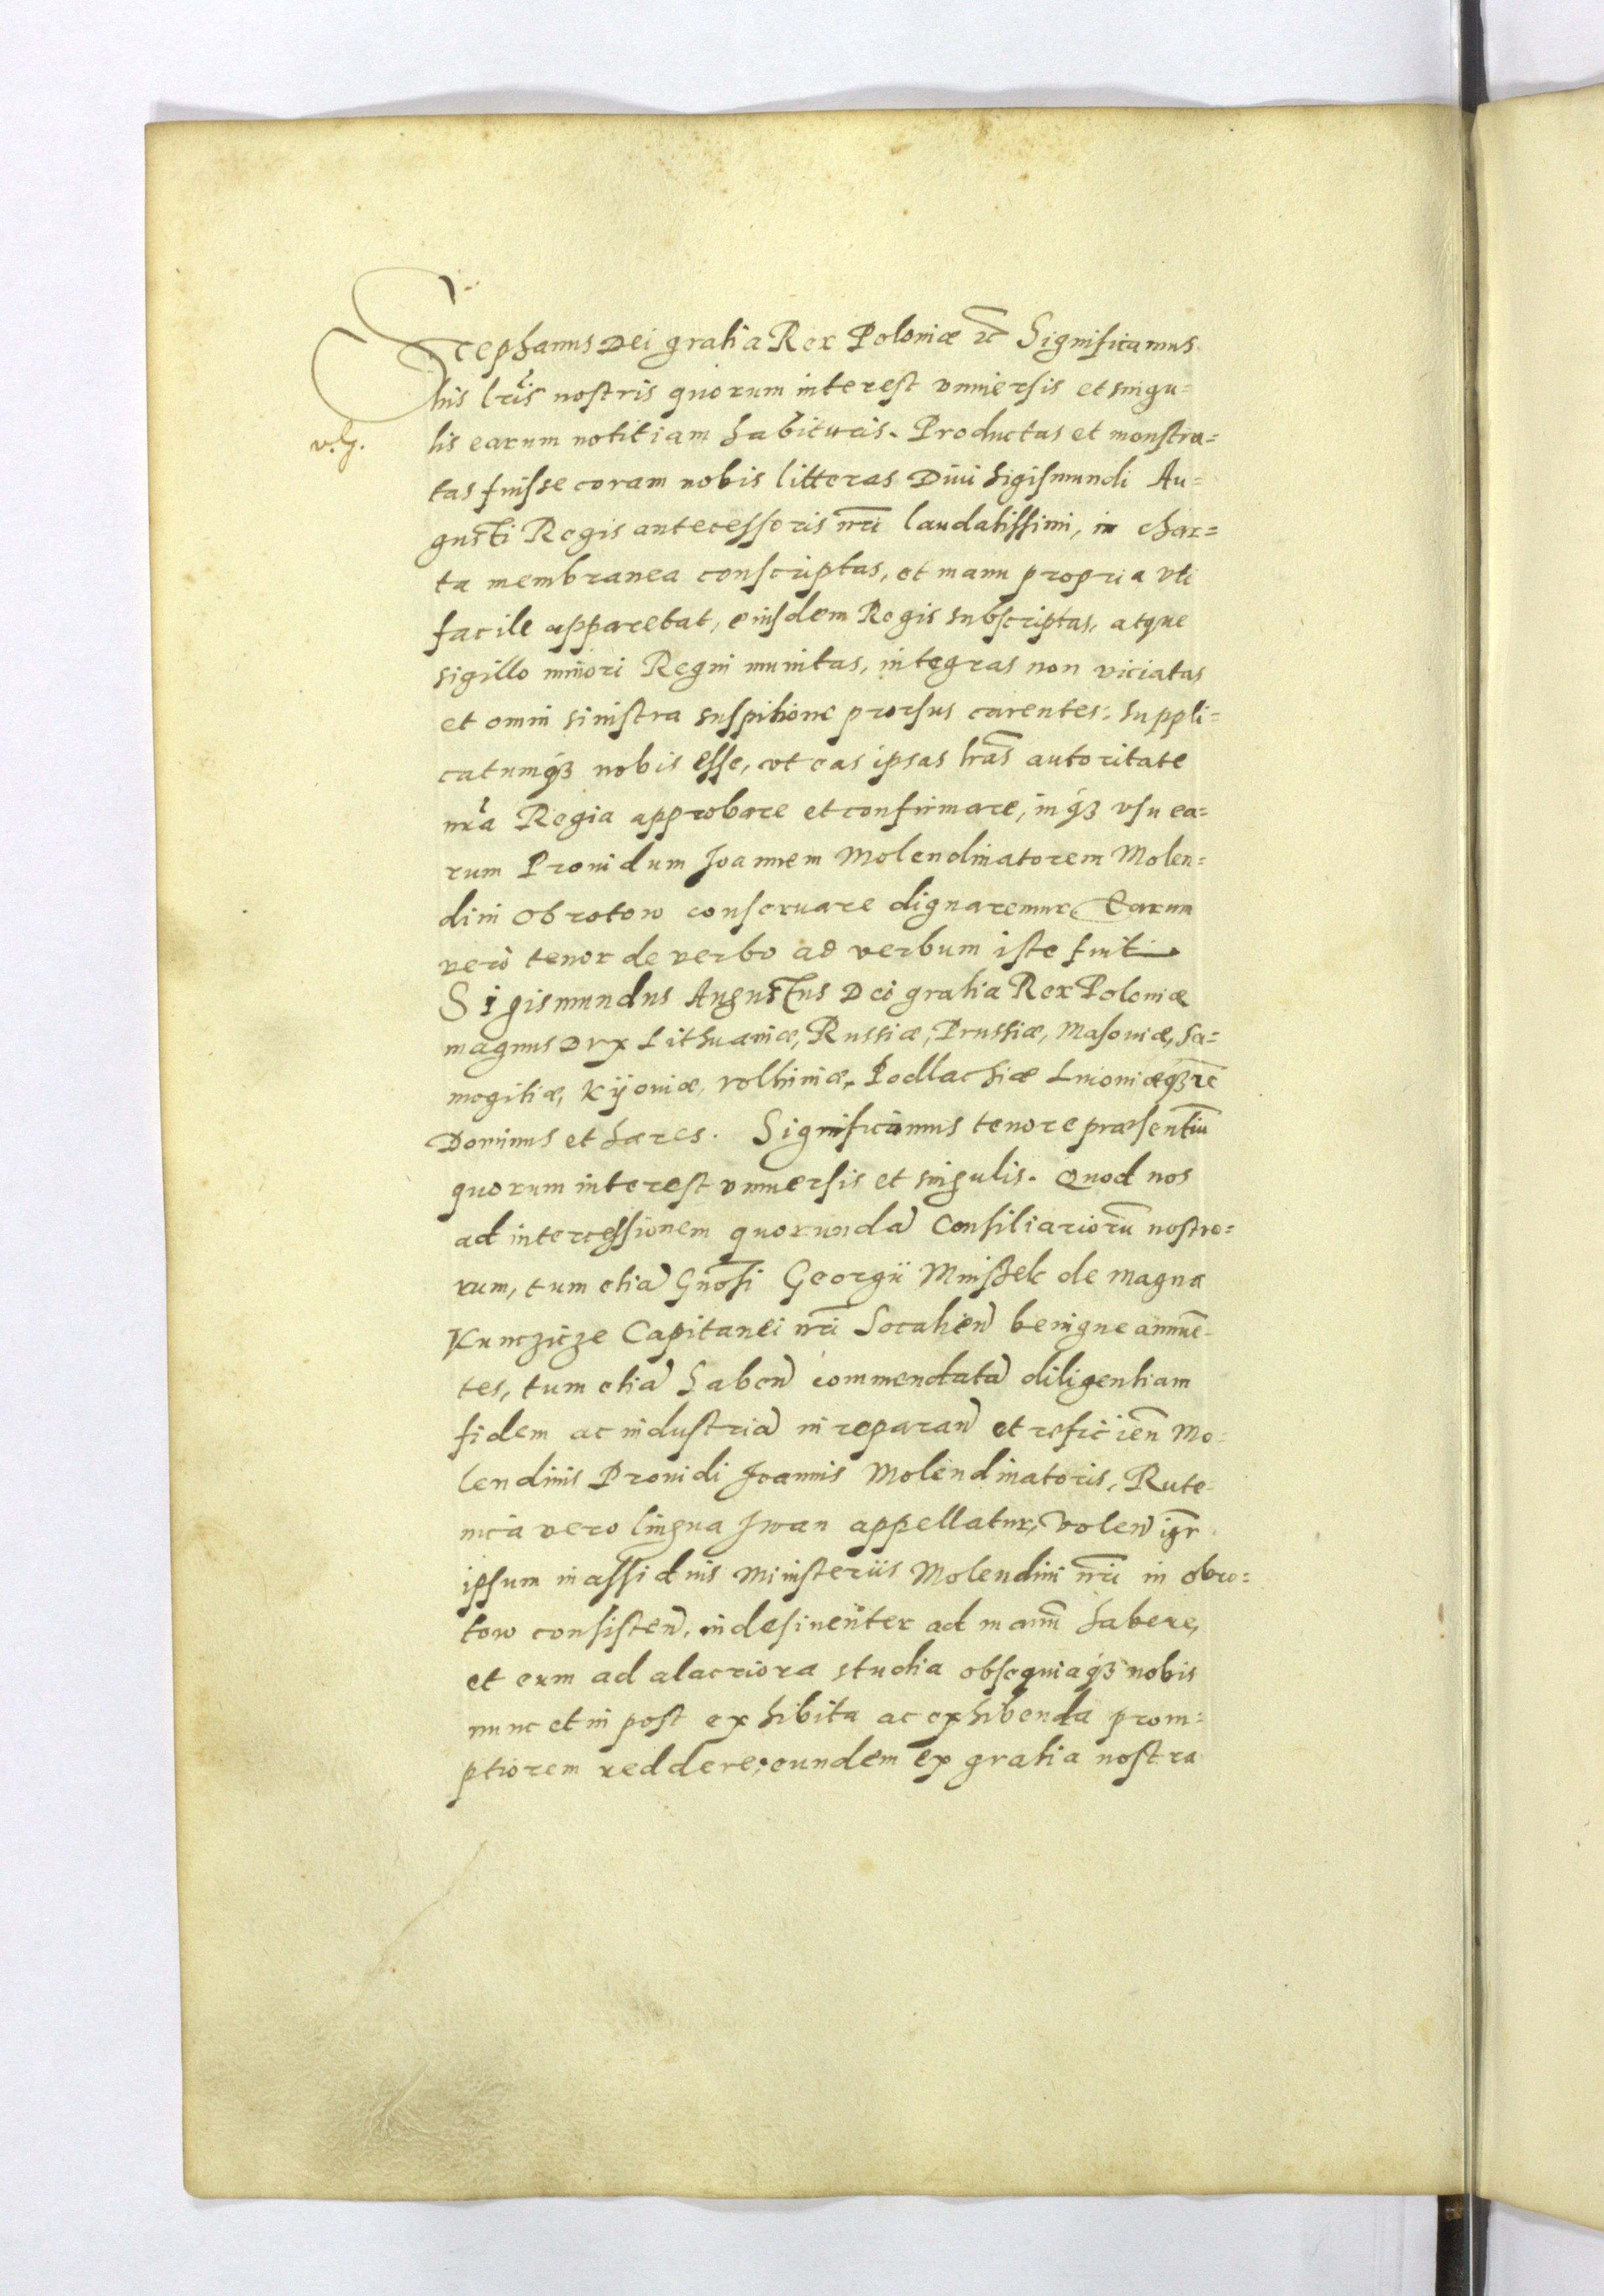 Stephanus Dei gratia Rex Poloniæ etc Significamus
his lris nostris quorum interest vniuersis et singu=
v. g. lis earum notitiam habituris. Productas et monstra=
tas fuisse coram nobis litteras Diui Sigismundi Au=
gusti Regis antecessoris nri laudatissimi, in char=
ta membranea conscriptas, et manu propria vti
facile apparebat, eiusdem Regis subscriptas, atque
sigillo minori Regni munitas, integras non viciatas
et omni sinistra suspitione prorsus carentes: Suppli=
catumq3 nobis esse, vt eas ipsas lras autoritate
nra Regia approbare et confirmare, inq3 vsu ea=
rum Prouidum Joannem Molendinatorem Molen=
dini Obrotow conseruare dignaremur. Earum
verò tenor de verbo ad verbum iste fuit
Sigismundus Augustus Dei gratia Rex Poloniæ
magnus Dux Lithuaniæ, Russiæ, Prussiæ, Masouiæ, Sa=
mogitiæ, Kijouiæ, volhiniæ, Podlachiæ Liuoniæq3 etc
Dominus et hæres. Significamus tenore præsentiu
quorum interest vniuersis et singulis. Quod nos
ad intercessionem quorunda Consiliarioru nostro=
rum, tum etia Gnosi Georgii Mnischek de magna
Kunczicze Capitanei nri Socalien benigne annue=
tes, tum etia haben commendata diligentiam
fidem ac industria in reparan et reficien Mo=
lendinis Prouidi Joannis Molendinatoris, Rute=
nica vero lingua Jwan appellatur, volen igr
ipsum in assiduis ministeriis Molendini nri in obro=
tow consisten, indesinenter ad manu habere,
et eum ad alacriora studia obsequiaq3 nobis
nunc et in post exhibita ac exhibenda prom=
ptiorem reddere, eundem ex gratia nostra